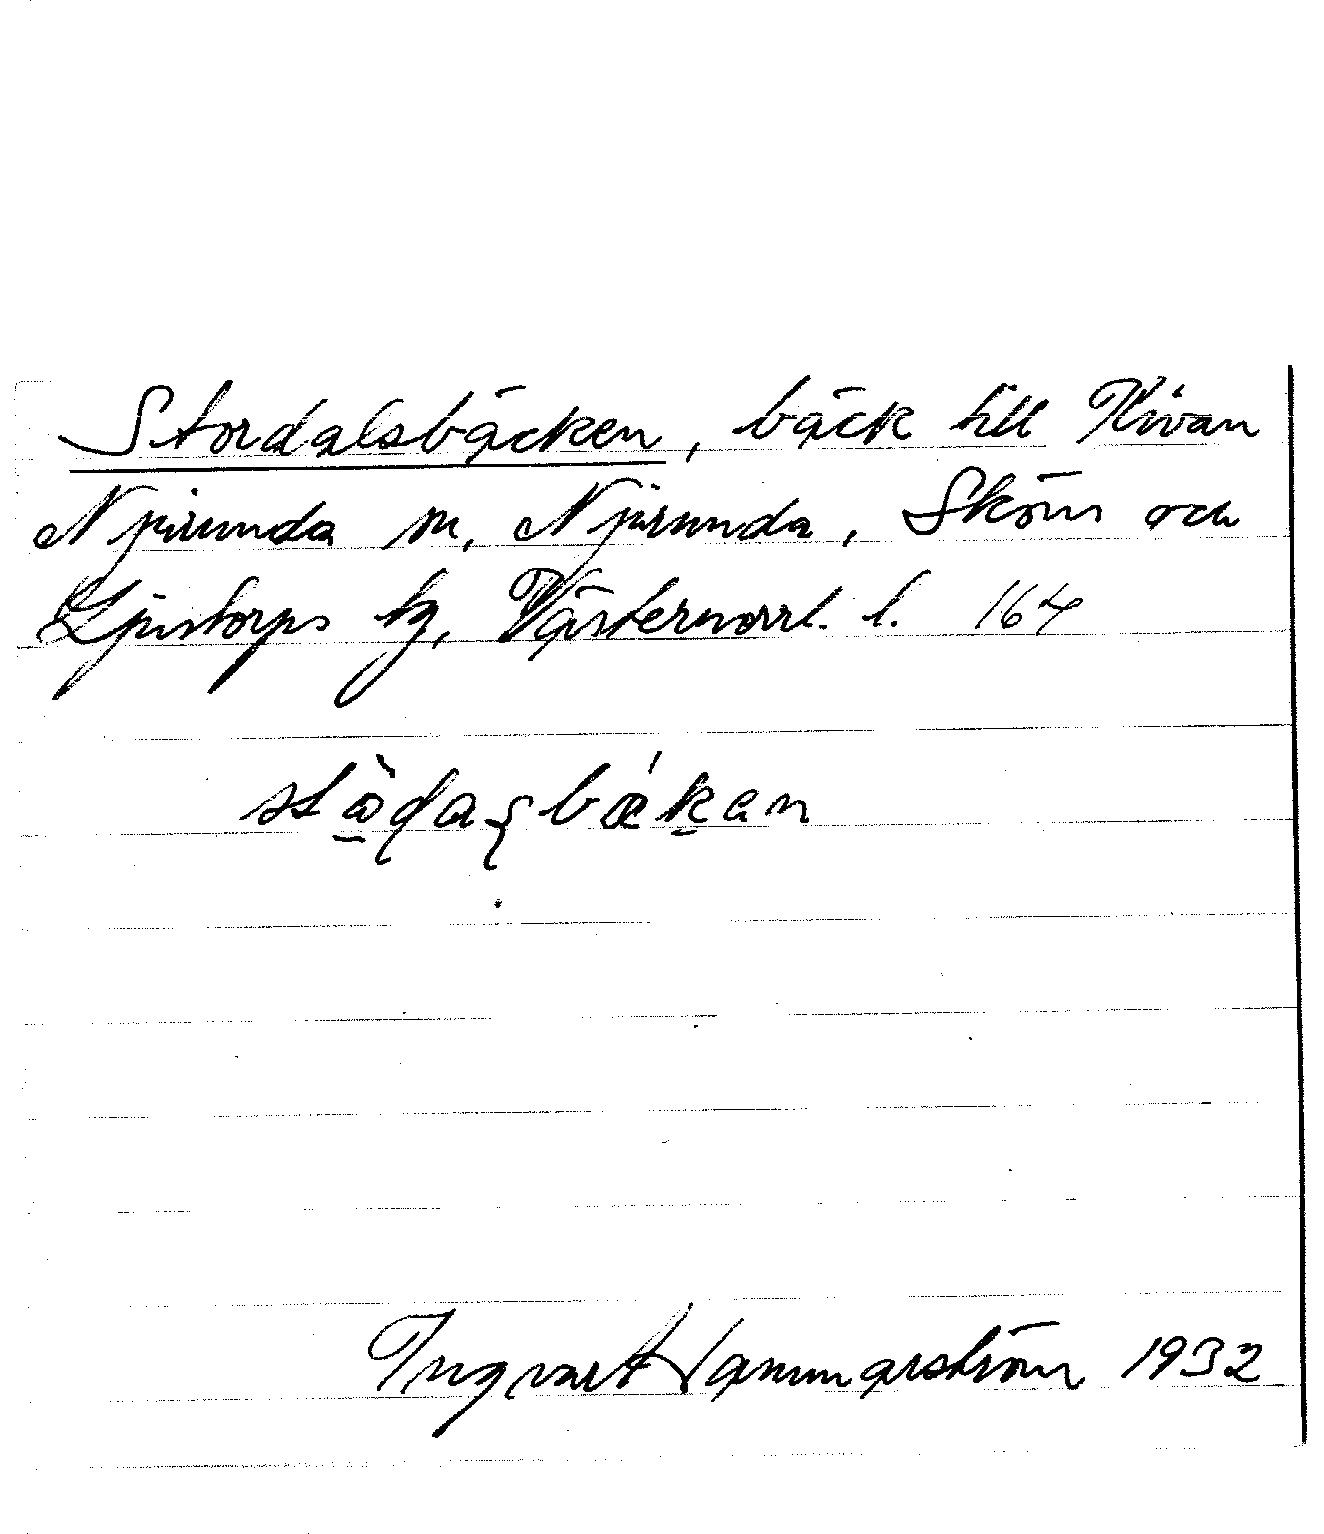 Stordalsbäcken, bäck till Nivan
Njurunda sn, Njurunda, Sköns och
Ljustorps tg, Västernorrl. l. 164
Ingvart Hammarström 1932